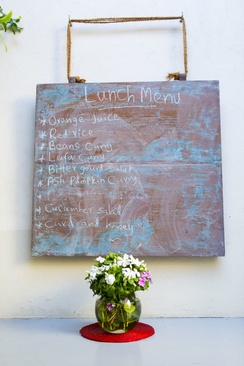 Lunch Menu
* Orange Juice
* Red rice
* Beans Curry
* Leafa Curry
* Bitter gourd salad
* Ash Pumpkin Curry
* Cucumber salad
* Curd and honey